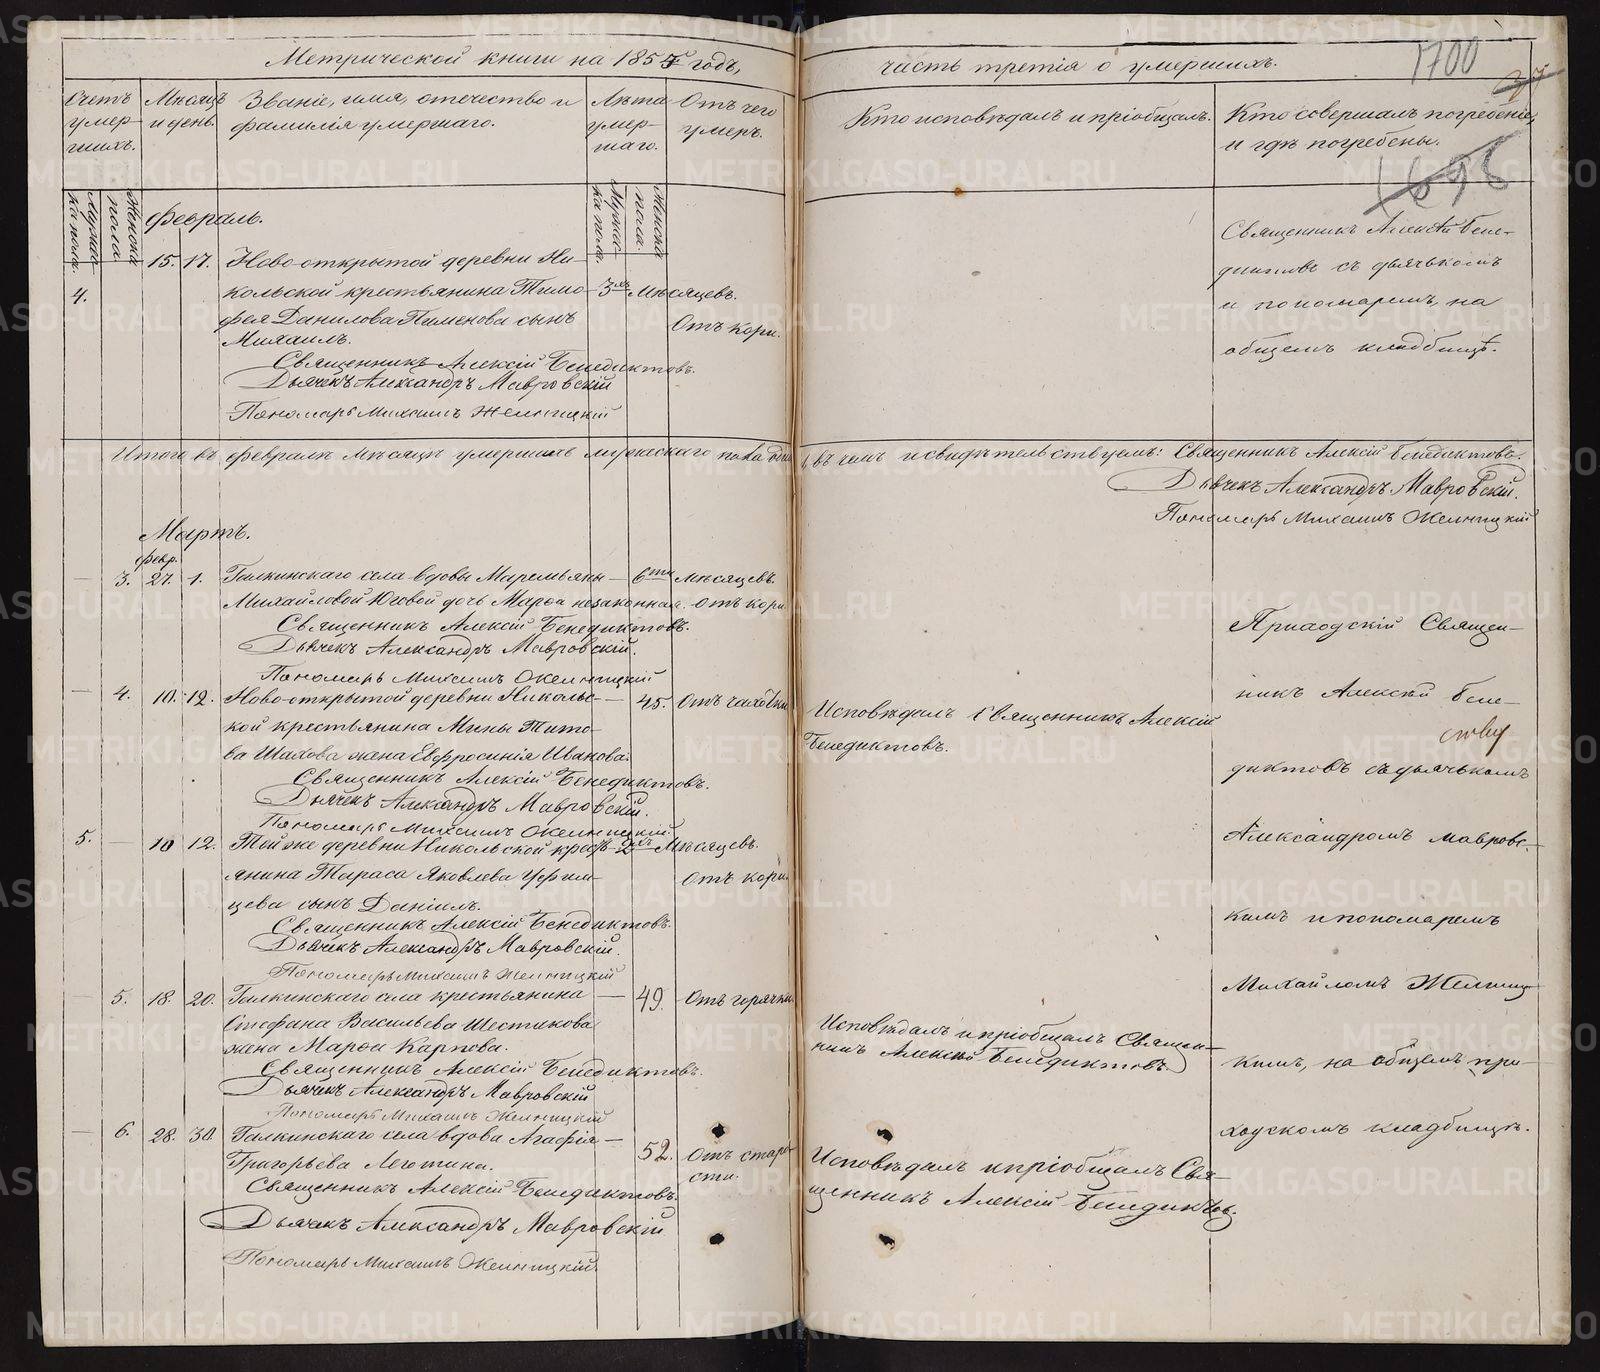 Метрической книги на 1855 годъ,
часть третія о умершихъ.
1700
1698
Счетъ умер-шихъ.
Мѣсяцъ и день.
Званіе, имя, отечество и фамилія умершаго.
Лѣта умер-шаго.
Отъ чего умеръ.
Кто исповѣдалъ и пріобщалъ.
Кто совершалъ погребеніе, и гдѣ погребены.
Мужеска пола.
Женска пола.
Мужеска пола.
Женска пола.
Февраль.
4. 15. 17. Ново-открытой деревни Ни-
кольской крестьянина Тимо- 3хъ Мѣсяцевъ.
фея Данилова Пименова сынъ Отъ кори.
Михаилъ.
Священникъ Алексій Бенедиктовъ.
Дьячекъ Александръ Мавровскій
Пономарь Михаилъ Желницкій
Священникъ Алексѣй Бене-
диктовъ съ дьячькомъ
и пономаремъ, на
общемъ кладбищѣ.
Итого въ февралѣ мѣсяцѣ умершихъ мужескаго пола
въ чемъ и свидѣтельствуемъ: Священникъ Алексій Бенедиктовъ.
Дьячекъ Александръ Мавровскій.
Пономарь Михаилъ Желницкій
Мартъ.
февр.
— 3. 27. 1. Галкинскаго села вдовы Маремьяны — 6ти мѣсяцевъ.
Михайловой Юговой дочь Марѳа незаконная. Отъ кори
Священникъ Алексій Бенедиктовъ.
Дьячекъ Александръ Мавровскій.
Пономарь Михаилъ Желницкій
— 4. 10. 12. Ново-открытой деревни Никольс- — 45. Отъ чахотки
кой крестьянина Мины Тито-
ва Шахова жена Евфросинія Иванова.
Священникъ Алексій Бенедиктовъ.
Дьячекъ Александръ Мавровскій.
Пономарь Михаилъ Желницкій
Исповѣдалъ Священникъ Алексій
Бенедиктовъ.
5. — 10 12. Той же деревни Никольской крест- 2хъ Мѣсяцевъ.
янина Тараса Яковлева Уфим- Отъ кори
цева сынъ Даніилъ.
Священникъ Алексій Бенедиктовъ.
Дьячекъ Александръ Мавровскій.
Пономарь Михаилъ Желницкій
— 5. 18. 20. Галкинскаго села крестьянина — 49. Отъ горячки
Стефана Васильева Шестакова
жена Марѳа Карпова.
Священникъ Алексій Бенедиктовъ.
Дьячекъ Александръ Мавровскій
Пономарь Михаилъ Желницкій
Исповѣдалъ и пріобщалъ Священ-
никъ Алексій Бенедиктовъ.
— 6. 28. 30. Галкинскаго села вдова Агафія — 52. Отъ старо-
Григорьева Леготина. сти.
Священникъ Алексій Бенедиктовъ.
Дьячекъ Александръ Мавровскій
Пономарь Михаилъ Желницкій.
Исповѣдалъ и пріобщалъ Свя-
щенникъ Алексій Бенедиктов.
Приходскій Священ-
никъ Алексѣй Бене-
диктовъ съ дьячькомъ
Александромъ Мавровс-
кимъ и пономаремъ
Михайломъ Желниц-
кимъ, на общемъ при-
ходскомъ кладбищѣ.
METRIKI.GASO-URAL.RU